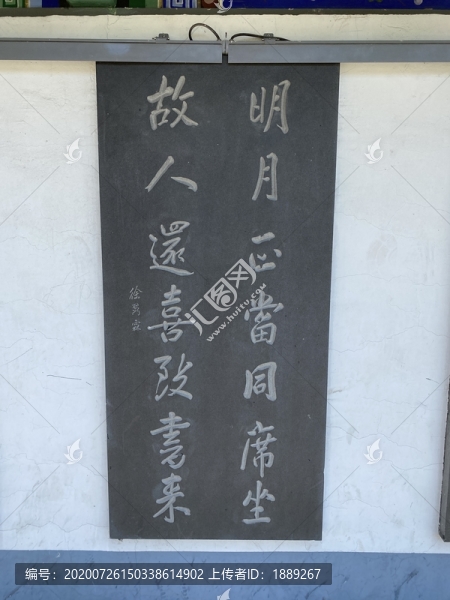 明月正當同席坐
故人還喜致書来
汇图网
www.huitu.com
编号：20200726150338614902 上传者ID：1889267